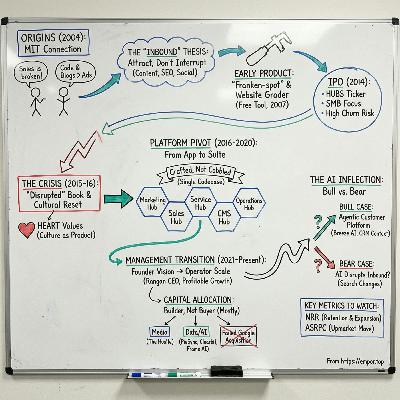 ORIGINS (2004):
MIT Connection
Sales is
broken!
Code &
Blogs > Ads
THE "INBOUND" THESIS:
Attract, Don't Interrupt
(Content, SEO, Social)
EARLY PRODUCT:
"Franken-spot" &
Website Grader
(Free Tool, 2007)
IPO (2014):
• HUBS Ticker
• SMB Focus
• High Churn Risk
THE CRISIS (2015-16):
"Disrupted" Book &
Cultural Reset
HEART Values
(Culture as Product)
PLATFORM PIVOT (2016-2020):
From App to Suite
Crafted, Not Cobbled
(Single Codebase)
Marketing
Hub
Sales
Hub
Service
Hub
CMS
Hub
Operations
Hub
MANAGEMENT TRANSITION (2021-Present):
Founder Vision → Operator Scale
(Rangan CEO, Profitable Growth)
CAPITAL ALLOCATION:
Builder, Not Buyer (Mostly)
Media
(The Hustle)
Data/AI
Frame AI)
Failed Google
Acquisition
THE AI INFLECTION:
Bull vs. Bear
?
BULL CASE:
Agentic Customer
Platform
(Breeze AI, CRM Context)
?
BEAR CASE:
AI Disrupts Inbound?
(Search Changes)
KEY METRICS TO WATCH:
NRR (Retention & Expansion)
ASRPC (Upmarket Move)
From https://empor.top